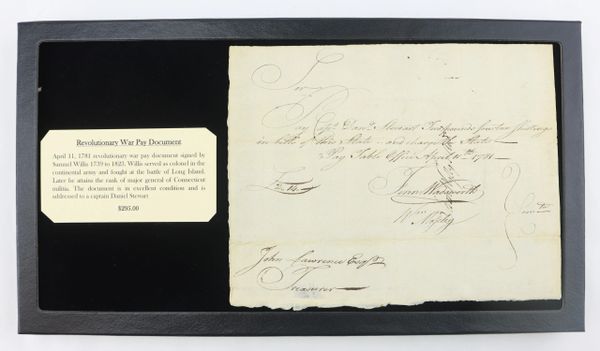 Revolutionary War Pay Document
April 11, 1781 revolutionary war pay document signed by
Samuel Willis 1739 to 1823. Willis served as colonel in the
continental army and fought at the battle of Long Island.
Later he attains the rank of major general of Connecticut
militia. The document is in excellent condition and is
addressed to a captain Daniel Stewart
$295.00
Sir
Pay Capt. Danl. Stewart Two pounds fourteen shillings
in bills of this State and charge the State
Pay Table Office April 11th 1781
£2. 14.
Fenn Wadsworth
Wm Moseley
John Lawrence Esqr.
Treasurer